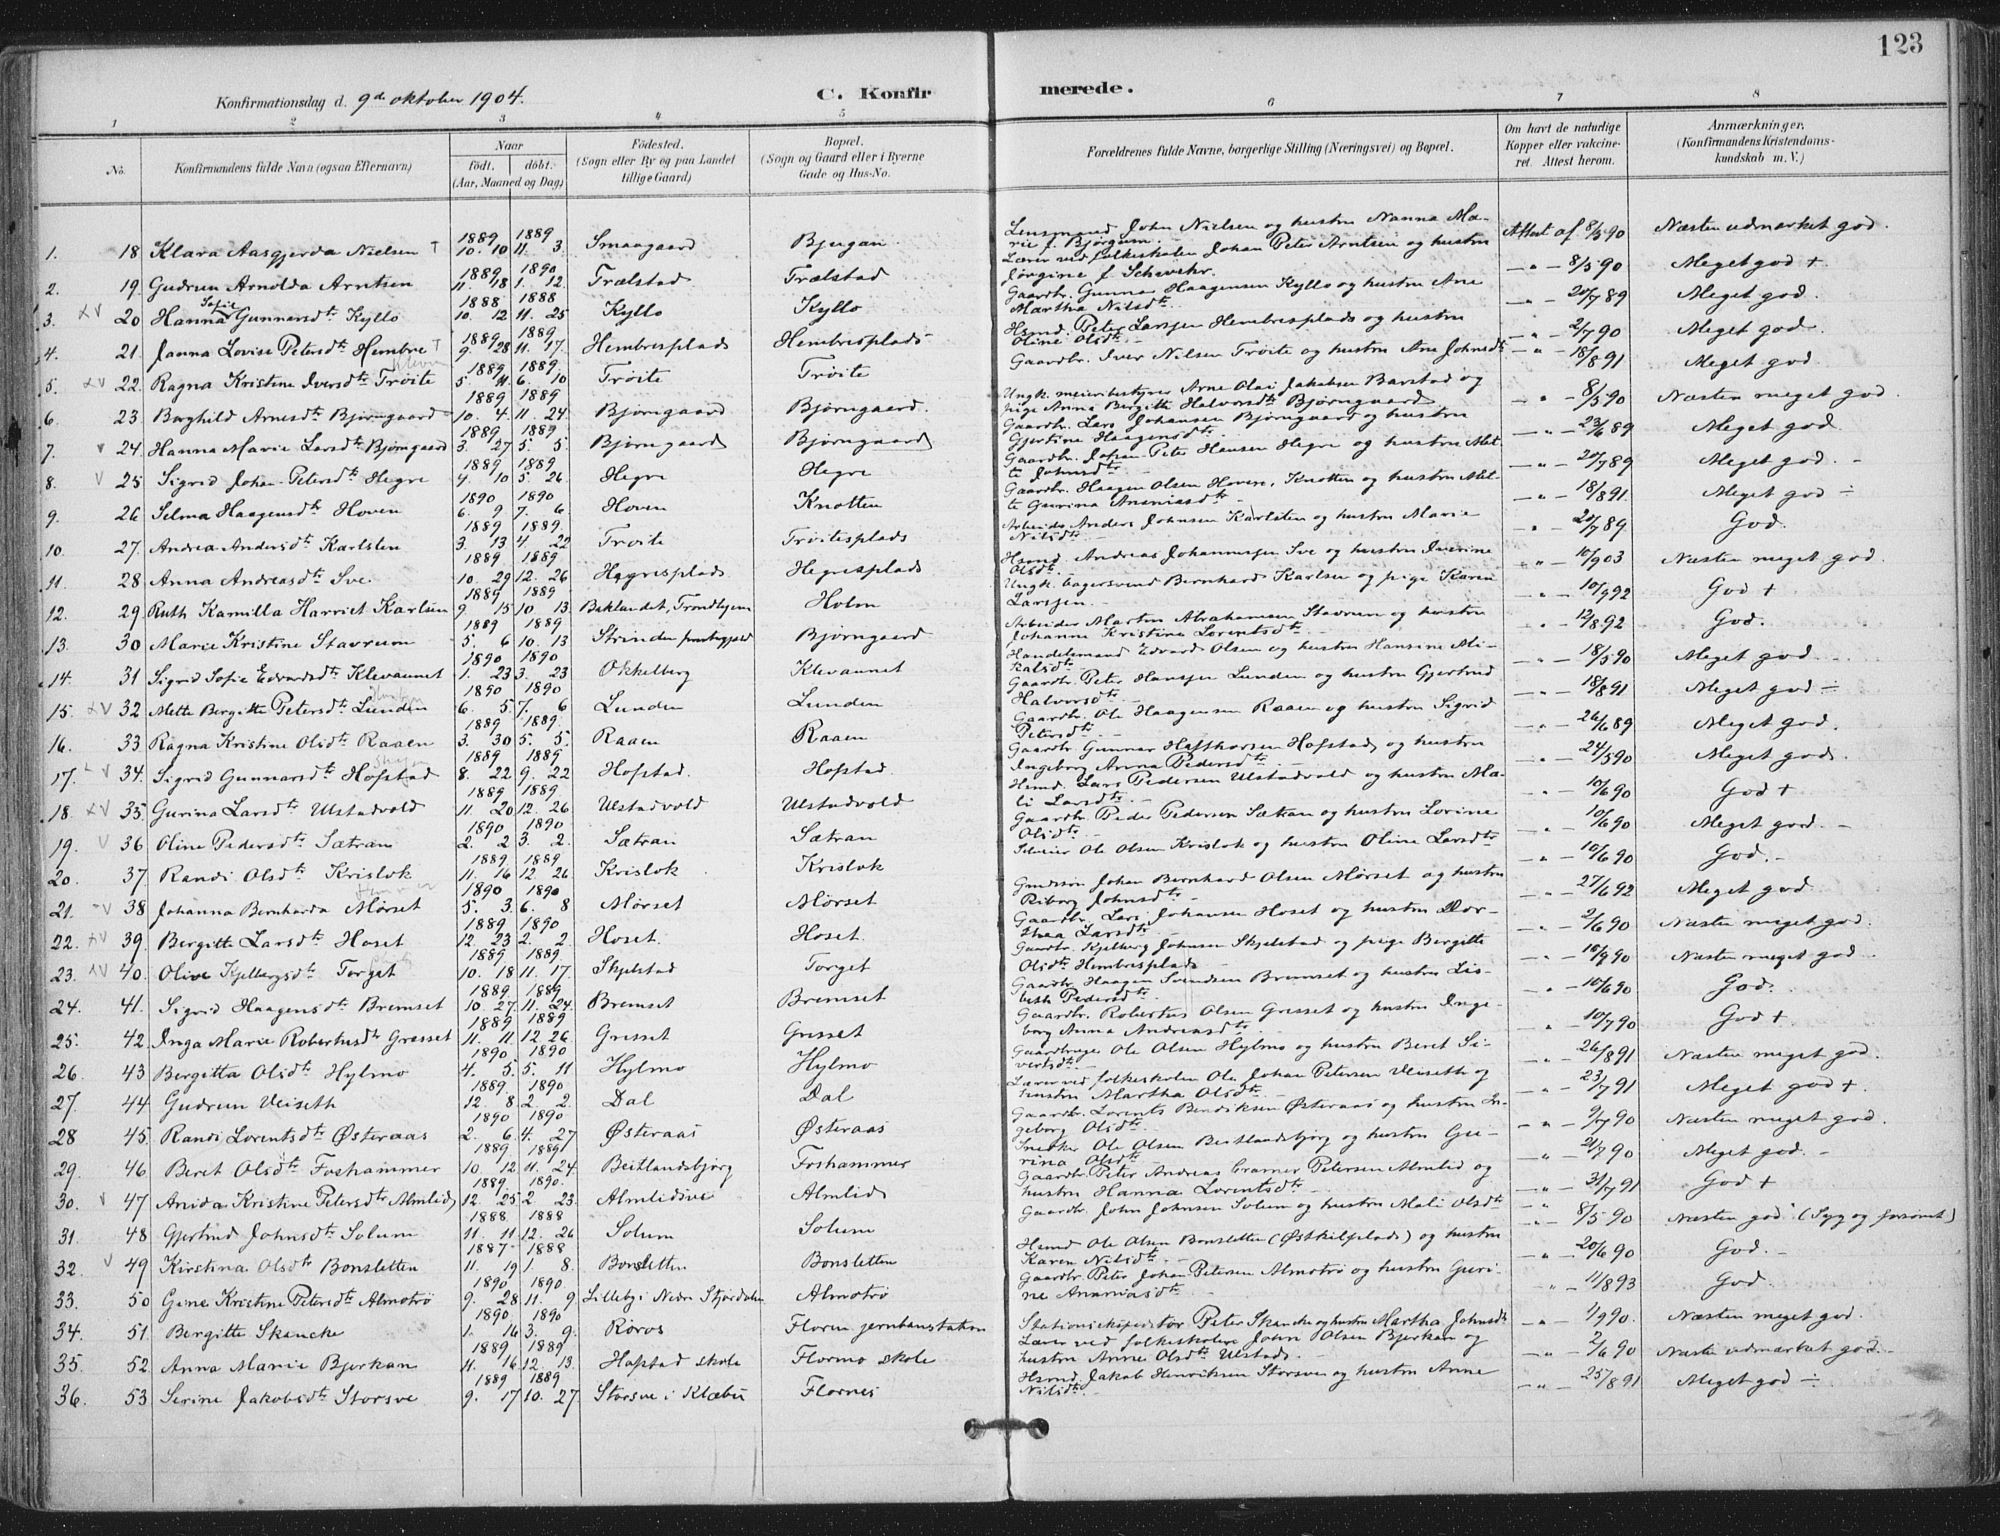 123
Konfirmationsdag d. 9de oktober 1904. C. Konfirmerede.
1 2 3 4 5 6 7 8
No. Konfirmandens fulde Navn (ogsaa Efternavn) Naar födt. döbt. (Aar, Maaned og Dag) Födested. (Sogn eller By og paa Landet tillige Gaard) Bopæl. (Sogn og Gaard eller i Byerne Gade og Hus-No. Forældrenes fulde Navne, borgerlige Stilling (Næringsvei) og Bopæl. Om havt de naturlige Kopper eller vakcineret. Attest herom. Anmærkninger. (Konfirmandens Kristendomskundskab m. V.)
1. 18 Klara Aasgjerda Nielsen 1889 10. 10 1889 11. 3. Smaagaard Bjergan Lensmand John Nielsen og hustru Nanna Marie f. Bjørgum. Attest af 8/5 90 Næsten udmærket god.
2. 19. Gudrun Arnolda Arntsen 1889 11. 18 1890 1. 12. Trælstad Trælstad Lærer ved folkeskolen Johan Peter Arntsen og hustru Jørgine f. 8/5 90 Meget god +
3. 20 Hanna Sofie Gunnarsdtr Kyllo 1888 10. 12 1888 11. 25 Kyllo Kyllo Gaardbr. Gunnar Haagensen Kyllo og hustru Ane Martha Nilsdtr. 20/7 89 Meget god.
4. 21. Janna Lovise Petersdtr Hembre 1889 9. 28 1889 11. 17. Hembresplads Hembresplads Hsmd. Peter Larssen Hembresplads og hustru Oline Olsdtr. 2/7 90 Meget god.
5. 22. Ragna Kristine Iversdtr Trøite 1889 5. 11 1889 6. 10 Trøite Trøite Gaardbr. Iver Nilsen Trøite og hustru Ane Johnsdtr 18/8 91 Meget god
6. 23 Borghild Arnesdtr Bjørngaard 1889 10. 4. 1889 11. 24 Bjørngaard Bjørngaard. Ungk. meieribestyrer Arne Olai Jakobsen Barstad og pige Anna Bergitte Halvorsdtr Bjørngaard 8/5 90 Næsten meget god.
7. 24. Hanna Marie Larsdtr Bjørngaard 1889 3. 27 1889 5. 5. Bjørngaard Bjørngaard Gaardbr. Lars Johansen Bjørngaard og hustru Gjertine Haagensdtr. 23/6 89 Meget god.
8. 25 Sigrid Johan-Petersdtr Hegre 1889 4. 10 1889 5. 26. Hegre Hegre Gaardbr. Johan Peter Hansen Hegre og hustru Mette Johnsdtr. 20/7 89 Meget god. -
9. 26 Selma Haagensdtr Hoven 1890 6. 9 1890 7. 6 Hoven Knotten Gaardbr. Haagen Olsen Hoven, Knotten og hustru Mette Gurina Ananiasdtr 18/8 91. Meget god ÷
10. 27. Andrea Andersdtr Karlsten 1889 3. 13 1889. 4. 22 Trøite Trøitesplads Arbeider Anders Johnsen Karlsten og hustru Marie Nilsdtr 20/7 89. God.
11. 28 Anna Andreasdtr Sve 1889 10. 29 1889 12. 26 Hegresplads Hegresplads Hsmd. Andreas Johannessen Sve og hustru Iverine Olsdtr. 10/9 03 Næsten meget god
12. 29 Ruth Kamilla Harriet Karlsen 1889 9. 15 1889 10. 13 Baklandet, Trondhjem Holm Ungk. bagersvend Bernhard Karlsen og pige Karen Larssen. 10/9 92 God +
13. 30 Marie Kristine Stavrum 1889 5. 6 1889 10. 13 Strinden Bjørngaard Arbeider Martin Abrahamsen Stavrum og hustru Johanne Kristine Lorentsdtr. 12/8 92 God.
14. 31 Sigrid Sofie Edvardsdtr Klevaunet 1890 1. 23 1890 3. 23 Okkelberg Klevaunet Handelsmand Edvard Olsen og hustru Hansine Mikalsdtr. 18/5 90 Meget god.
15. 32 Mette Bergitte Petersdtr Lunden 1890 6. 5 1890 7. 6 Lunden Lunden Gaardbr. Peter Hanssen Lunden og hustru Gjertrud Halvorsdtr. 18/8 91 Meget god ÷
16. 33 Ragna Kristine Olsdtr Raaen 1889 3. 30 1889. 5. 5. Raaen Raaen Gaardbr. Ole Haagensen Raaen og hustru Sigrid Petersdtr. 26/6 89 Meget god.
17. 34. Sigrid Gunnarsdtr Hofstad 1889 8. 22 1889 9. 22 Hofstad. Hofstad. Gaardbr. Gunnar Hafthorsen Hofstad og hustru Ingeborg Anna Pedersdtr. 24/5 90 Meget god.
18. 35. Gurina Larsdtr Ulstadvold 1889 11. 20 1889 12. 26 Ulstadvold Ulstadvold Hsmd. Lars Pedersen Ulstadvold og hustru Mali Larsdtr. 10/6 90 God +
19. 36 Oline Pedersdtr Sætran 1890 2. 2 1890 3. 2. Sætran Sætran Gaardbr. Peder Pedersen Sætran og hustru Lorine Olsdtr. 10/6 90 Meget god. -
20. 37 Randi Olsdtr Krislok 1889 11. 16 1889. 12 26 Krislok Krislok Ole Olsen Krislok og hustru Oline Larsdtr 10/6 90 God. -
21. 38 Johanna Bernharda Mørset 1890 5. 3. 1890 6. 8 Mørset Mørset Johan Bernhard Olsen Mørset og hustru Riborg Johnsdtr. 27/6 92 Meget god
22. 39. Bergitte Larsdtr Hoset 1889 12. 23 1890 2. 2. Hoset. Hoset. Gaardbr. Lars Johansen Hoset og hustru Dorthea Larsdtr. 2/6 90 Næsten meget god.
23. 40. Olive Kjelbergsdtr Torget 1889 10. 18 1889. 11. 17. Skjelstad Torget Gaardbr. Kjelberg Johnsen Skjelstad og pige Bergitte Olsdtr Hembresplads 10/9 90 Næsten meget god
24. 41. Sigrid Haagensdtr Bremset 1889 10. 27 1889 11. 24. Bremset Bremset Gaardbr. Haagen Svendsen Bremset og hustru Lisbeth Pedersdtr. 10/6 90 God.
25. 42. Inga Marie Robertusdtr Gresset 1889 11. 11 1889 12 26. Gresset Gresset Gaardbr. Robertus Olsen Gresset og hustru Ingeborg Anna Andreasdtr. 10/7 90 God +
26 43 Bergitta Olsdtr Hylmo 1890. 4. 5. 1890 5. 11 Hylmo Hylmo Gaardbruger Ole Olsen Hylmo og hustru Beret Sivertsdtr. 26/8 91 Næsten meget god.
27. 44 Gudrun Veiseth 1889. 12. 8 1890 2. 2 Dal Dal Lærer ved folkeskolen Ole Johan Petersen Veiseth og hustru Martha Olsdtr. 23/7 91 Meget god +.
28 45. Randi Lorentsdtr Østeraas 1890 2. 6 1890 4. 27 Østeraas Østeraas Gaardbr. Lorents Bendiksen Østeraas og hustru Ingeborg Olsdtr. 9/7 90 Næsten meget god
29. 46 Beret Olsdtr Foshammer 1889 10. 12 1889 11. 24. Beitlandsbjørg Foshammer Snedker Ole Olsen Beitlandsbjørg og hustru Gurina Olsdtr. 2/7 90 Meget god. -
30. 47 Anida Kristine Petersdtr Almlid 1889 12. 25 1890. 2 23. Almlidsve Almlid Gaardbr. Peter Andreas Cramer Petersen Almlid og hustru Hanna Lorentsdtr. 31/7 91 God +
31. 48 Gjertrud Johnsdtr Solum 1888 11. 11 1888 12. 26 Solum Solum Gaardbr. John Johnsen Solum og hustru Mali Olsdtr 8/5 90 Næsten god (Syg og forsømt)
32. 49 Kirstina Olsdtr Bonsletten 1887 11. 19 1888 1. 8. Bonsletten Bonsletten Hsmd Ole Olsen Bonsletten (Østkilsplads) og hustru Karen Nilsdtr. 20/6 90 God. -
33. 50 Gine Kristine Petersdtr Almotrø 1890 9. 28 1890. 11. 9 Lilleby i Nedre Stjørdalen Almotrø Gaardbr. Peter Johan Petersen Almotrø og hustru Gurine Ananiasdtr. 11/8 93 God.
34. 51. Bergitte Skancke 1890 1. 16 1890 3. 9. Røros Floren jernbanestation Stationsekspeditør Peter Skancke og hustru Martha Johnsdtr 1/9 90. Næsten meget god.
35. 52. Anna Marie Bjerkan 1889 11. 16 1889 12. 13 Hofstad skole Flormo skole Lærer ved folkeskolen John Olsen Bjerkan og hustru Anne Olsdtr Ulstad. 2/6 90 Næsten udmærket god. -
36. 53 Serine Jakobsdtr Storsve 1889 9. 17 1889 10. 27. Storsve i Klæbu Flornes Hsmd. Jakob Henriksen Storsve og hustru Anne Nilsdtr. 25/8 91 Meget god ÷